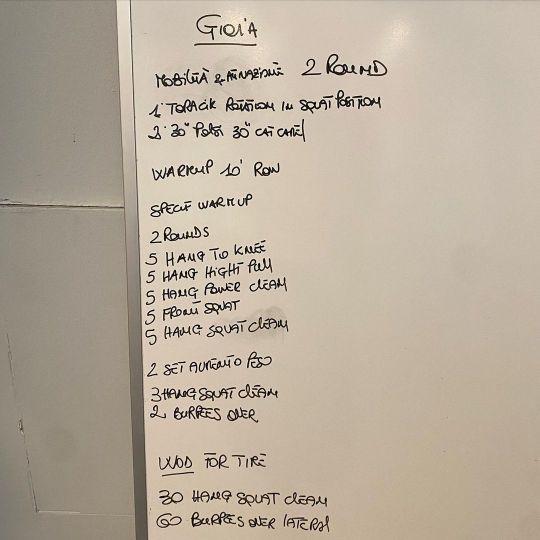 GIOIA
MOBILITÀ & ATTIVAZIONE 2 ROUND
1' TORACIK ROTATION IN SQUAT POSITION
30" 30" CAT CAMEL
WARMUP 10' ROW
SPECIF WARMUP
2 ROUNDS
5 HANG TO KNEE
5 HANG HIGHT PULL
5 HANG POWER CLEAM
5 FRONT SQUAT
5 HANG SQUAT CLEAM
2 SET AUMENTO PESO
3 HANG SQUAT CLEAM
2 BURPEES OVER
WOD FOR TIME
30 HANG SQUAT CLEAM
60 BURPEES OVER LATERAL